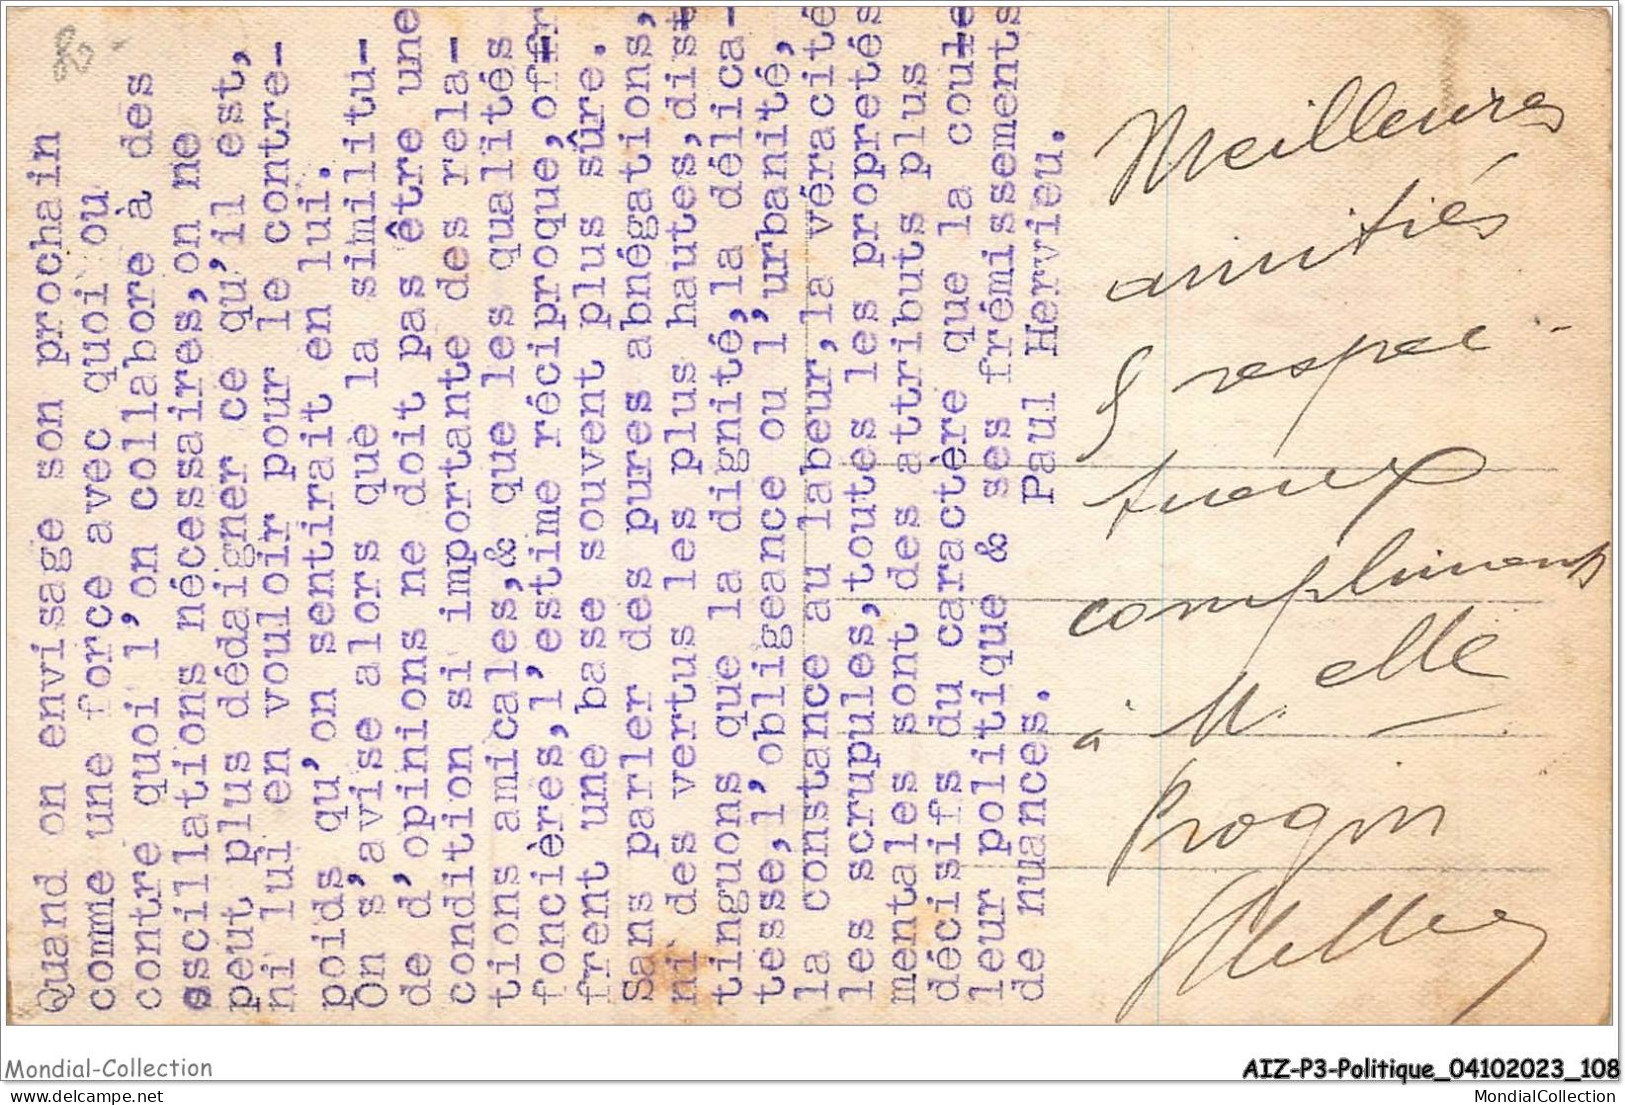 Quand on envisage son prochain
comme une force avec quoi ou
contre quoi l'on collabore à des
oscillations nécessaires,on ne
peut plus dédaigner ce qu'il est,
ni lui en vouloir pour le contre-
poids qu'on sentirait en lui.
On s'avise alors que la similitu-
de d'opinions ne doit pas être une
condition si importante des rela-
tions amicales,& que les qualités
foncières,l'estime réciproque,offr
frent une base souvent plus sûre.
Sans parler des pures abnégations,
ni des vertus les plus hautes,dist
tinguons que la dignité,la délica-
tesse,l'obligeance ou l'urbanité,
la constance au labeur,la véracité
les scrupules,toutes les propretés
mentales sont des attributs plus
décisifs du caractère que la coule
leur politique & ses frémissements
de nuances. Paul Hervieu.
Meilleures
amitiés
& respec-
tueux
compliments
à M elle
Progin
AIZ-P3-Politique_04102023_108
Mondial-Collection
delcampe.net
MondialCollection